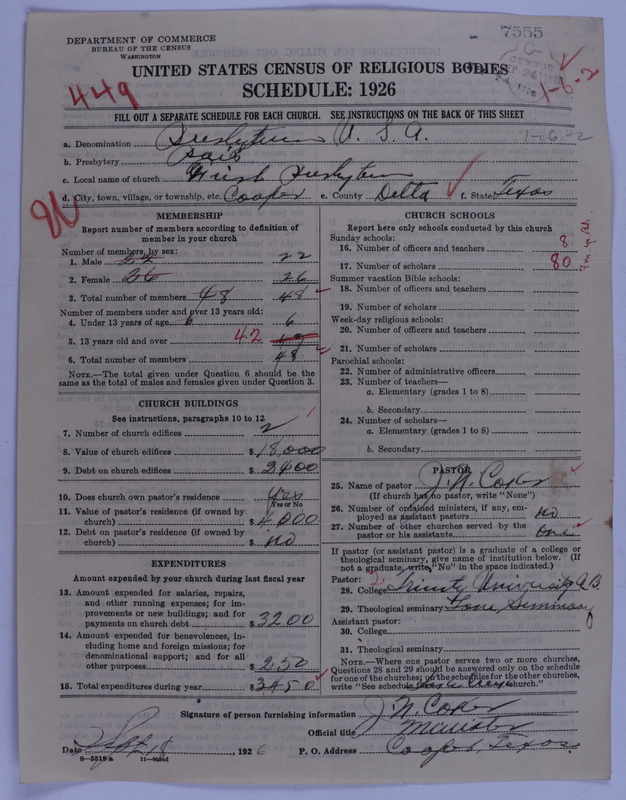 DEPARTMENT OF COMMERCE
BUREAU OF THE CENSUS
WASHINGTON
7555
449
UNITED STATES CENSUS OF RELIGIOUS BODIES
SCHEDULE: 1926
1-6-2
FILL OUT A SEPARATE SCHEDULE FOR EACH CHURCH. SEE INSTRUCTIONS ON THE BACK OF THIS SHEET
a. Denomination Presbyterian U. S. A.
1-6-2
b. Presbytery Paris
c. Local name of church First Presbyterian
d. City, town, village, or township, etc. Cooper e. County Delta f. State Texas
MEMBERSHIP
Report number of members according to definition of member in your church
Number of members, by sex:
1. Male 22
2. Female 26 26
3. Total number of members 48 48
Number of members under and over 13 years old:
4. Under 13 years of age 6 6
5. 13 years old and over 42
6. Total number of members 48
NOTE.—The total given under Question 6 should be the
same as the total of males and females given under Question 3.
CHURCH BUILDINGS
See instructions, paragraphs 10 to 12
7. Number of church edifices 2
8. Value of church edifices $18,000
9. Debt on church edifices $2400
10. Does church own pastor's residence Yes
Yes or No
11. Value of pastor's residence (if owned by
church) $4000
12. Debt on pastor's residence (if owned by
church) $ No
EXPENDITURES
Amount expended by your church during last fiscal year
13. Amount expended for salaries, repairs,
and other running expenses; for im-
provements or new buildings; and for
payments on church debt $3200
14. Amount expended for benevolences, in-
cluding home and foreign missions; for
denominational support; and for all
other purposes $250
15. Total expenditures during year $3450
CHURCH SCHOOLS
Report here only schools conducted by this church
Sunday schools:
16. Number of officers and teachers 8
17. Number of scholars 80
Summer vacation Bible schools:
18. Number of officers and teachers
19. Number of scholars
Week-day religious schools:
20. Number of officers and teachers
21. Number of scholars
Parochial schools:
22. Number of administrative officers
23. Number of teachers—
a. Elementary (grades 1 to 8)
b. Secondary
24. Number of scholars—
a. Elementary (grades 1 to 8)
b. Secondary
PASTOR
25. Name of pastor J. N. Coker
(If church has no pastor, write "None")
26. Number of ordained ministers, if any, em-
ployed as assistant pastors No
27. Number of other churches served by the
pastor or his assistants One
If pastor (or assistant pastor) is a graduate of a college or
theological seminary, give name of institution below. (If
not a graduate, write "No" in the space indicated.)
Pastor:
28. College Trinity University A.B.
29. Theological seminary Lane Seminary
Assistant pastor:
30. College
31. Theological seminary
NOTE.—Where one pastor serves two or more churches,
Questions 28 and 29 should be answered only on the schedule
for one of the churches; on the schedules for the other churches,
write "See schedule church."
Signature of person furnishing information J. N. Coker
Official title Minister
Date Sept 18, 1926 P. O. Address Cooper, Texas
8-5519a 11-9554d